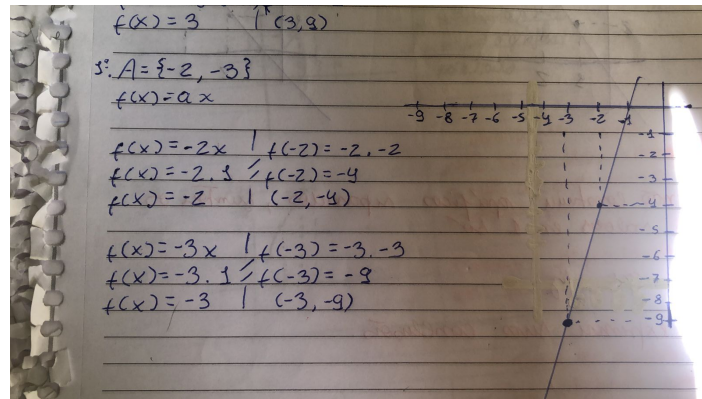 f(x) = 3 | (3,9)
3º. A = {-2, -3}
f(x) = a x
f(x) = -2x | f(-2) = -2. -2
f(x) = -2. 1 // f(-2) = -4
f(x) = -2 | (-2, -4)
f(x) = -3x | f(-3) = -3. -3
f(x) = -3. 1 // f(-3) = -9
f(x) = -3 | (-3, -9)
-9 -8 -7 -6 -5 -4 -3 -2 -1
-1
-2
-3
-4
-5
-6
-7
-8
-9